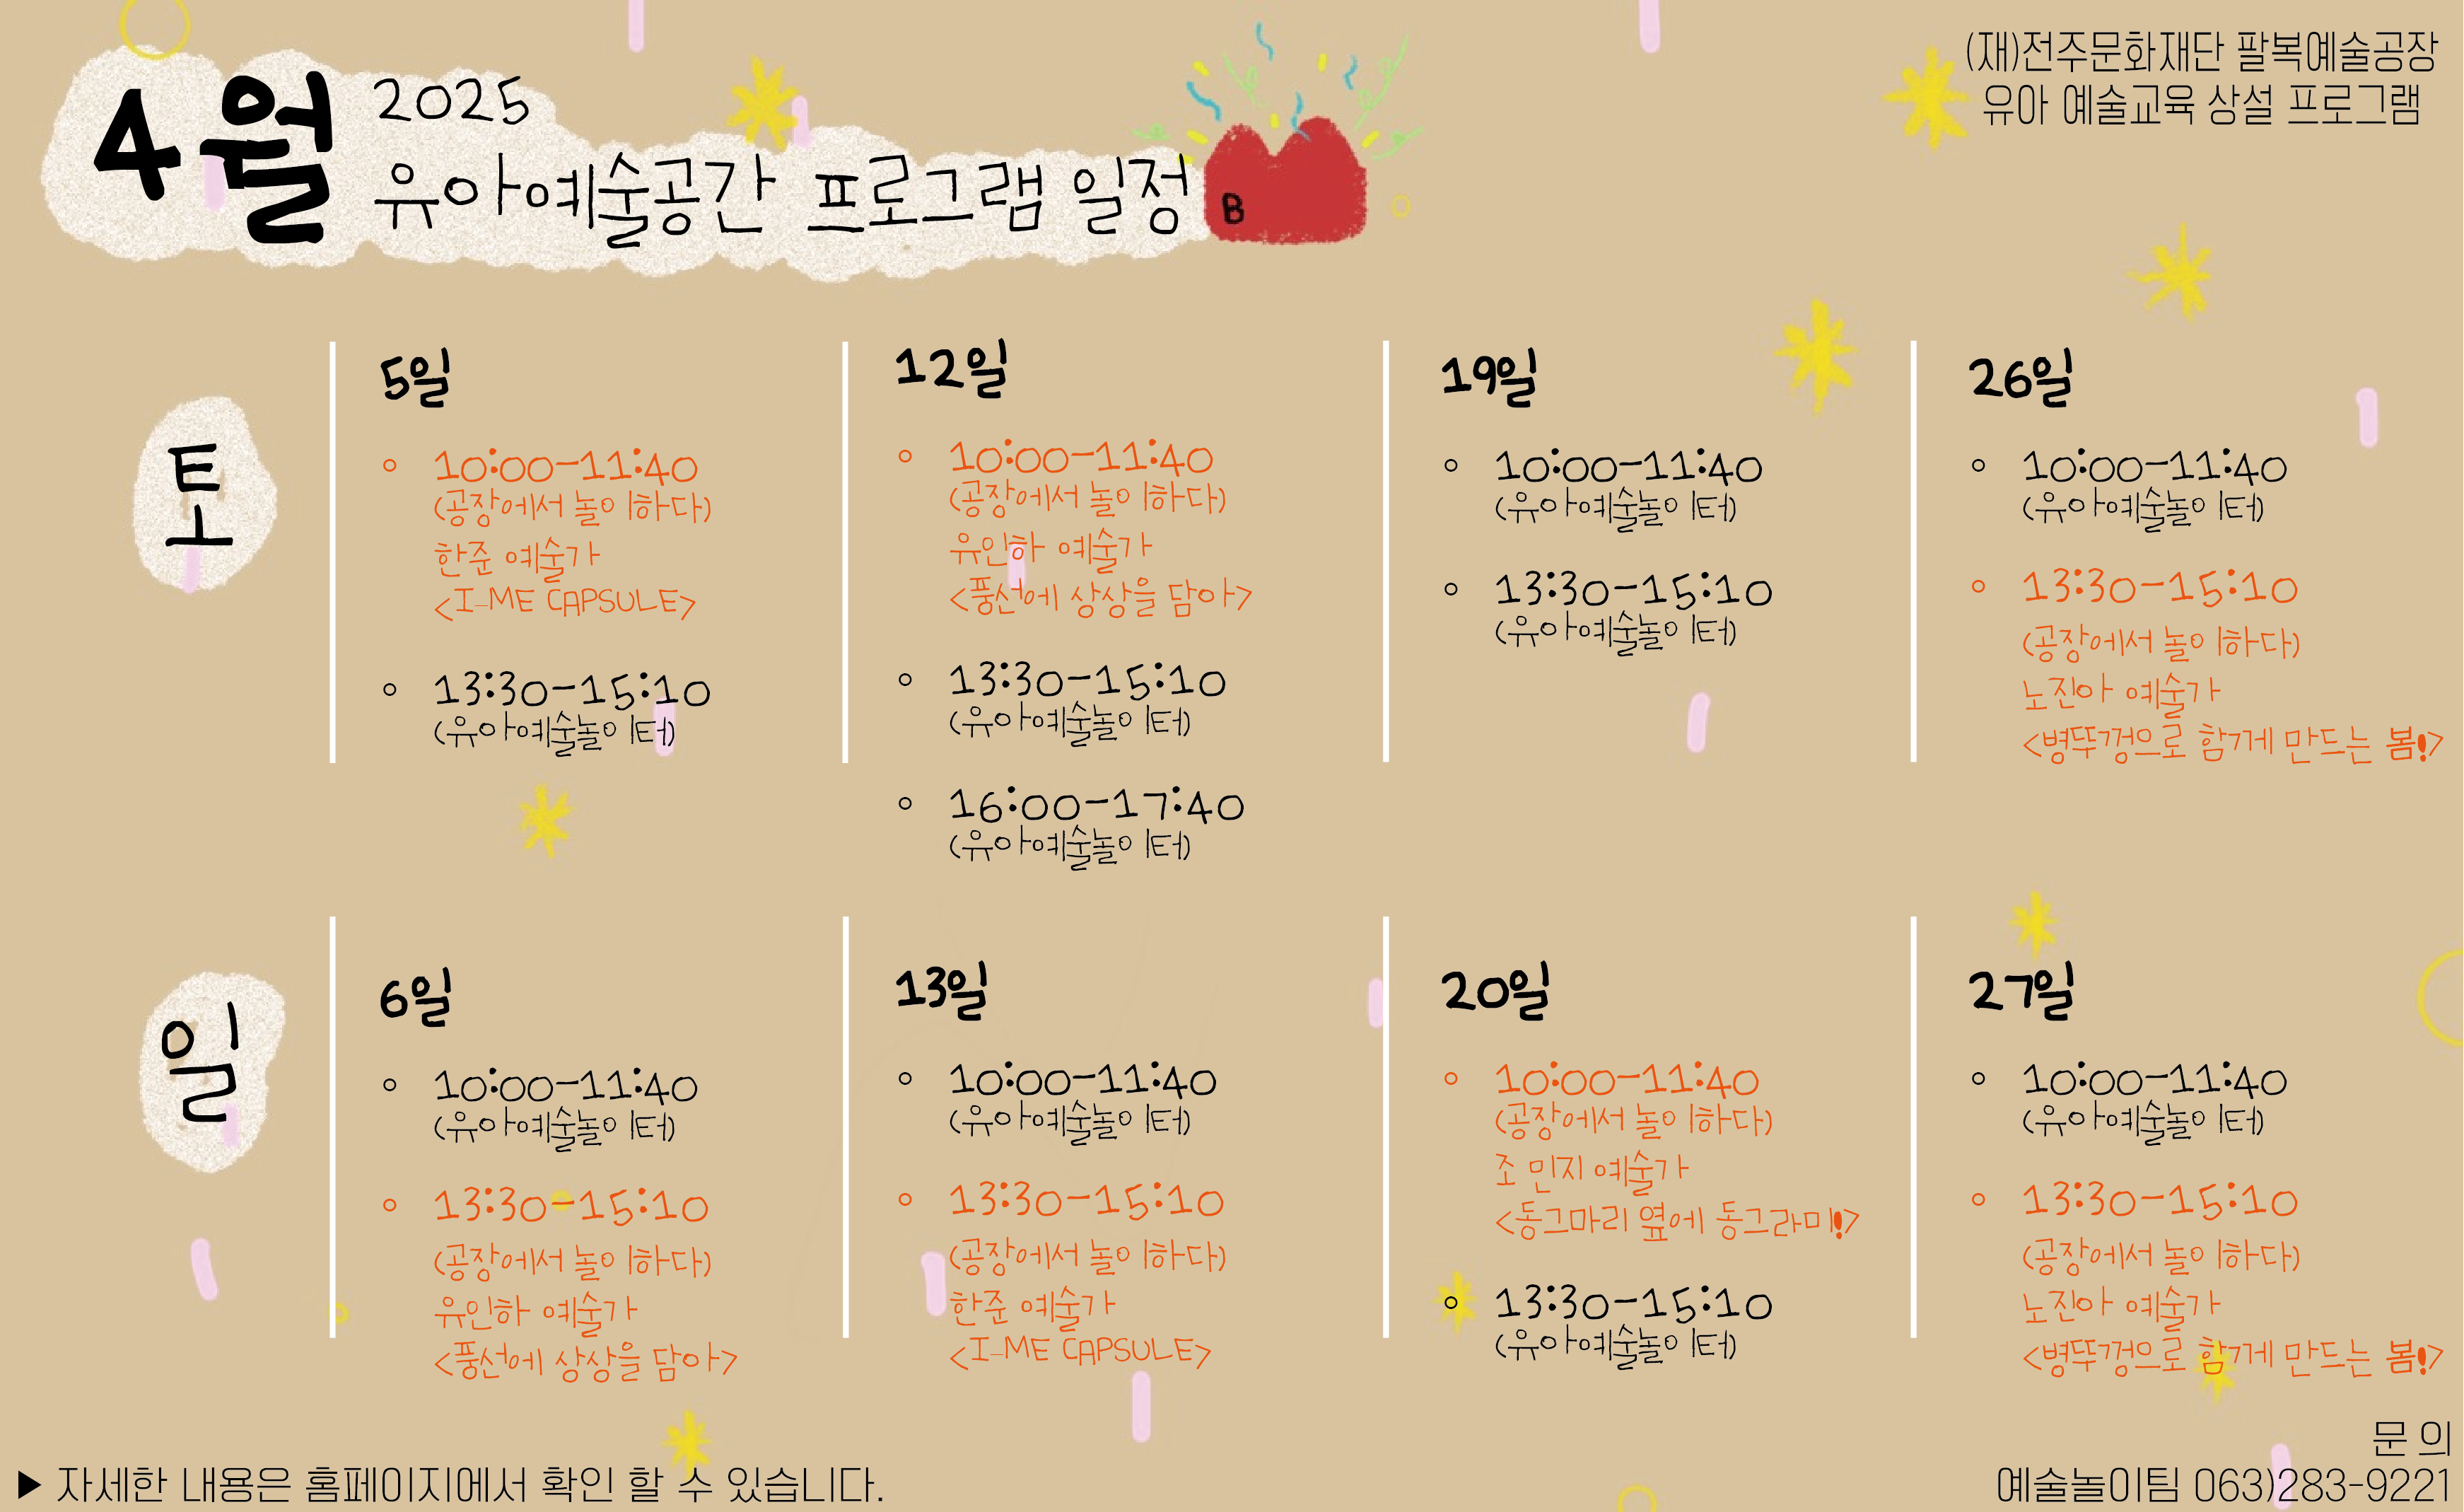 4월
2025
유아예술공간 프로그램 일정
B
(재)전주문화재단 팔복예술공장
유아 예술교육 상설 프로그램
토
5일
10:00-11:40
(공장에서 놀이하다)
한준 예술가
<I-ME CAPSULE>
13:30-15:10
(유아예술놀이터)
12일
10:00-11:40
(공장에서 놀이하다)
유인하 예술가
<풍선에 상상을 담아>
13:30-15:10
(유아예술놀이터)
16:00-17:40
(유아예술놀이터)
19일
10:00-11:40
(유아예술놀이터)
13:30-15:10
(유아예술놀이터)
26일
10:00-11:40
(유아예술놀이터)
13:30-15:10
(공장에서 놀이하다)
노진아 예술가
<병뚜껑으로 함께 만드는 봄!>
일
6일
10:00-11:40
(유아예술놀이터)
13:30-15:10
(공장에서 놀이하다)
유인하 예술가
<풍선에 상상을 담아>
13일
10:00-11:40
(유아예술놀이터)
13:30-15:10
(공장에서 놀이하다)
한준 예술가
<I-ME CAPSULE>
20일
10:00-11:40
(공장에서 놀이하다)
조 민지 예술가
<동그마리 옆에 동그라미!>
13:30-15:10
(유아예술놀이터)
27일
10:00-11:40
(유아예술놀이터)
13:30-15:10
(공장에서 놀이하다)
노진아 예술가
<병뚜껑으로 함께 만드는 봄!>
▶ 자세한 내용은 홈페이지에서 확인 할 수 있습니다.
문 의
예술놀이팀 063)283-9221